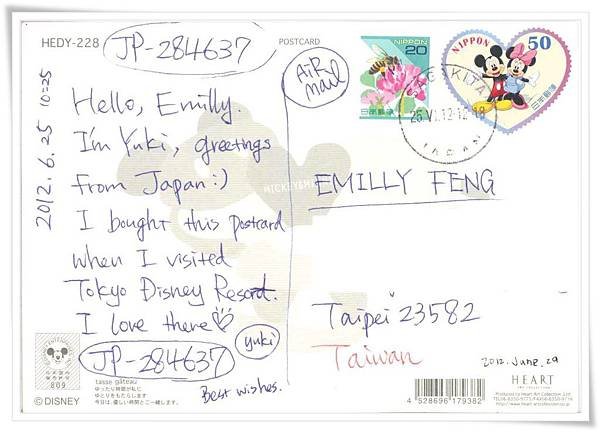 HEDY-228
JP-284637
POSTCARD
AiR mail
NIPPON
20
日本郵便
NIPPON
50
日本郵便
KITA
25.VI.12 12-18
JAPAN
2012. 6. 25 10:25
Hello, Emilly.
I'm Yuki, greetings
from Japan:)
I bought this postcard
when I visited
Tokyo Disney Resort.
I love there
yuki
JP-284637
Best wishes.
MICKEY&
EMILLY FENG
Taipei 23582
Taiwan
2012. June. 29
809
tasse gâteau
ゆったり時間が私に
ゆとりをもたらします
今日は、優しい時間とご一緒します。
© DISNEY
HEART
4 528696 179382